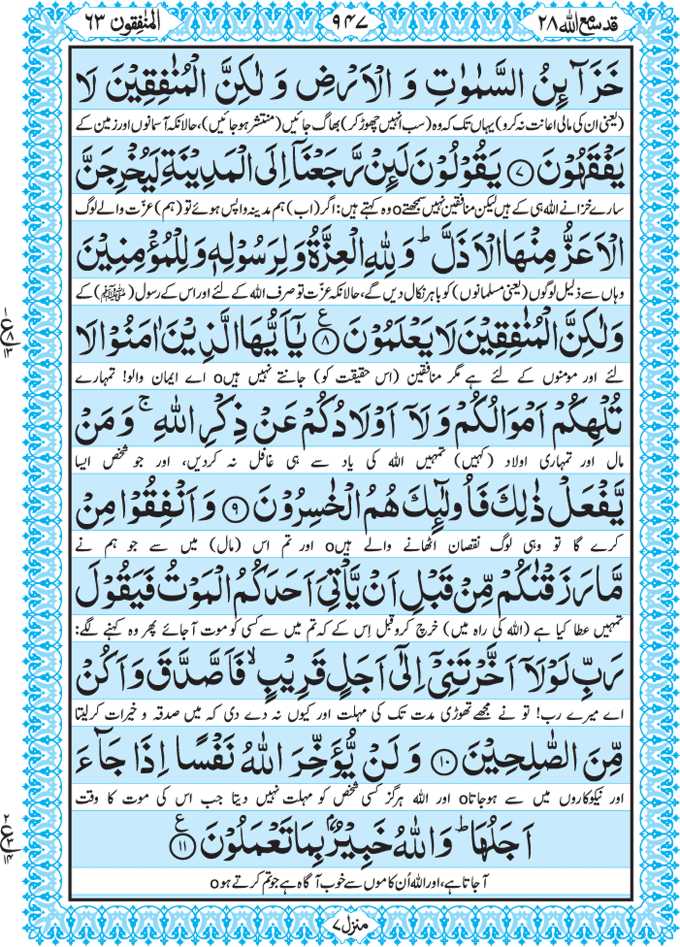 قد سمع الله ۲۸
۹۴۷
المنٰفقون ۶۳
خَزَآئِنُ السَّمٰوٰتِ وَ الْاَرْضِ وَ لٰكِنَّ الْمُنٰفِقِيْنَ لَا
(یعنی ان کی مالی اعانت نہ کرو) یہاں تک کہ وہ (سب انہیں چھوڑ کر) بھاگ جائیں (منتشر ہو جائیں)، حالانکہ آسمانوں اور زمین کے
يَفْقَهُوْنَ ۷ يَقُوْلُوْنَ لَئِنْ رَّجَعْنَاۤ اِلَى الْمَدِيْنَةِ لَيُخْرِجَنَّ
سارے خزانے اللہ ہی کے ہیں لیکن منافقین نہیں سمجھتےo وہ کہتے ہیں: اگر (اب) ہم مدینہ واپس ہوئے تو (ہم) عزّت والے لوگ
الْاَعَزُّ مِنْهَا الْاَذَلَّ ؕ وَ لِلّٰهِ الْعِزَّةُ وَ لِرَسُوْلِهٖ وَ لِلْمُؤْمِنِيْنَ
وہاں سے ذلیل لوگوں (یعنی مسلمانوں) کو باہر نکال دیں گے، حالانکہ عزّت تو صرف اللہ کے لئے اور اس کے رسول (ﷺ) کے
وَ لٰكِنَّ الْمُنٰفِقِيْنَ لَا يَعْلَمُوْنَ ۸ ع يٰۤاَيُّهَا الَّذِيْنَ اٰمَنُوْا لَا
لئے اور مومنوں کے لئے ہے مگر منافقین (اس حقیقت کو) جانتے نہیں ہیںo اے ایمان والو! تمہارے
تُلْهِكُمْ اَمْوَالُكُمْ وَ لَاۤ اَوْلَادُكُمْ عَنْ ذِكْرِ اللّٰهِ ۚ وَ مَنْ
مال اور تمہاری اولاد (کہیں) تمہیں اللہ کی یاد سے ہی غافل نہ کر دیں، اور جو شخص ایسا
يَّفْعَلْ ذٰلِكَ فَاُولٰٓئِكَ هُمُ الْخٰسِرُوْنَ ۹ وَ اَنْفِقُوْا مِنْ
کرے گا تو وہی لوگ نقصان اٹھانے والے ہیںo اور تم اس (مال) میں سے جو ہم نے
مَّا رَزَقْنٰكُمْ مِّنْ قَبْلِ اَنْ يَّاْتِيَ اَحَدَكُمُ الْمَوْتُ فَيَقُوْلَ
تمہیں عطا کیا ہے (اللہ کی راہ میں) خرچ کرو قبل اِس کے کہ تم میں سے کسی کو موت آ جائے پھر وہ کہنے لگے:
رَبِّ لَوْلَاۤ اَخَّرْتَنِيْۤ اِلٰۤى اَجَلٍ قَرِيْبٍ ۙ فَاَصَّدَّقَ وَ اَكُنْ
اے میرے رب! تو نے مجھے تھوڑی مدت تک کی مہلت اور کیوں نہ دے دی کہ میں صدقہ و خیرات کر لیتا
مِّنَ الصّٰلِحِيْنَ ۱۰ وَ لَنْ يُّؤَخِّرَ اللّٰهُ نَفْسًا اِذَا جَآءَ
اور نیکوکاروں میں سے ہو جاتاo اور اللہ ہرگز کسی شخص کو مہلت نہیں دیتا جب اس کی موت کا وقت
اَجَلُهَا ؕ وَ اللّٰهُ خَبِيْرٌۢ بِمَا تَعْمَلُوْنَ ۱۱ ع
آ جاتا ہے، اور اللہ اُن کاموں سے خوب آگاہ ہے جو تم کرتے ہوo
منزل ۷